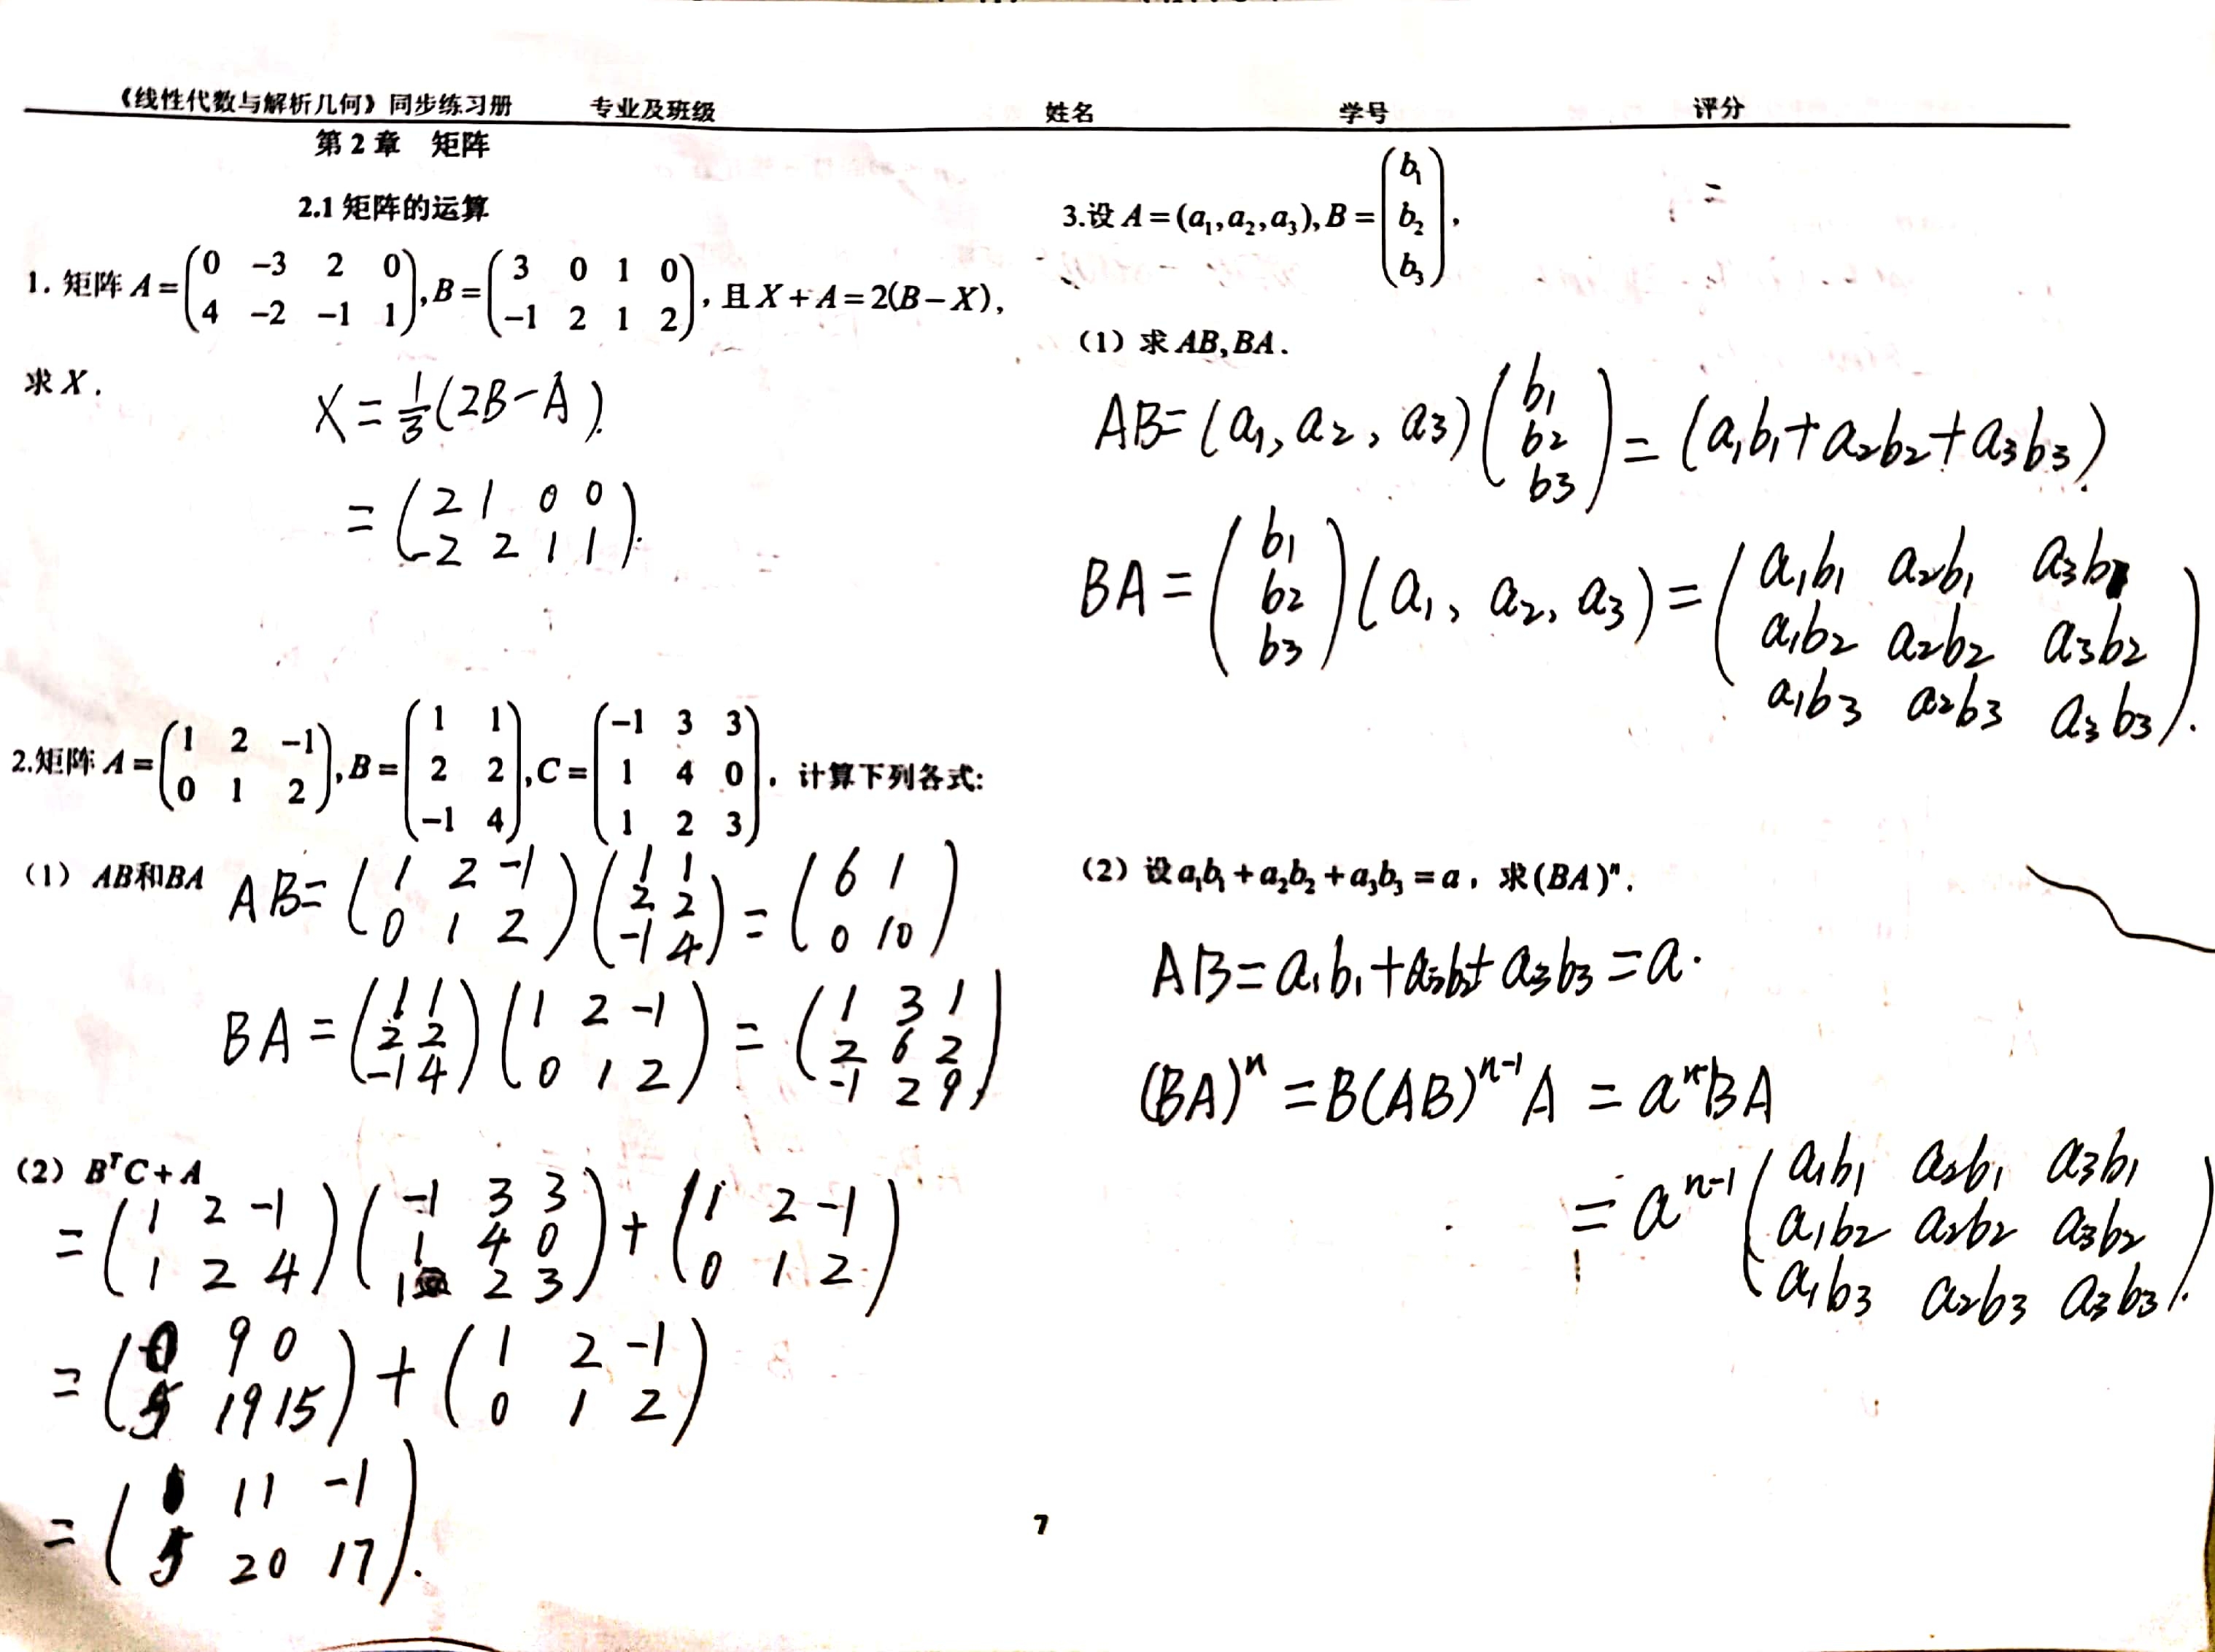 《线性代数与解析几何》同步练习册 专业及班级 姓名 学号 评分
第 2 章 矩阵
2.1 矩阵的运算
1. 矩阵 A = (0 −3 2 0; 4 −2 −1 1), B = (3 0 1 0; −1 2 1 2), 且 X + A = 2(B − X),
求 X.
X = 1/3 (2B − A).
= (2 1 0 0; −2 2 1 1).
2.矩阵 A = (1 2 −1; 0 1 2), B = (1 1; 2 2; −1 4), C = (−1 3 3; 1 4 0; 1 2 3), 计算下列各式:
(1) AB和BA
AB = (1 2 −1; 0 1 2)(1 1; 2 2; −1 4) = (6 1; 0 10)
BA = (1 1; 2 2; −1 4)(1 2 −1; 0 1 2) = (1 3 1; 2 6 2; −1 2 9)
(2) BᵀC + A
= (1 2 −1; 1 2 4)(−1 3 3; 1 4 0; 1 2 3) + (1 2 −1; 0 1 2)
= (0 9 0; 5 19 15) + (1 2 −1; 0 1 2)
= (1 11 −1; 5 20 17).
3.设 A = (a₁, a₂, a₃), B = (b₁; b₂; b₃),
=
(1) 求 AB, BA.
AB = (a₁, a₂, a₃)(b₁; b₂; b₃) = (a₁b₁ + a₂b₂ + a₃b₃).
BA = (b₁; b₂; b₃)(a₁, a₂, a₃) = (a₁b₁ a₂b₁ a₃b₁; a₁b₂ a₂b₂ a₃b₂; a₁b₃ a₂b₃ a₃b₃).
(2) 设 a₁b₁ + a₂b₂ + a₃b₃ = a, 求 (BA)ⁿ.
AB = a₁b₁ + a₂b₂ + a₃b₃ = a.
(BA)ⁿ = B(AB)ⁿ⁻¹A = aⁿ⁻¹BA
= aⁿ⁻¹(a₁b₁ a₂b₁ a₃b₁; a₁b₂ a₂b₂ a₃b₂; a₁b₃ a₂b₃ a₃b₃).
7